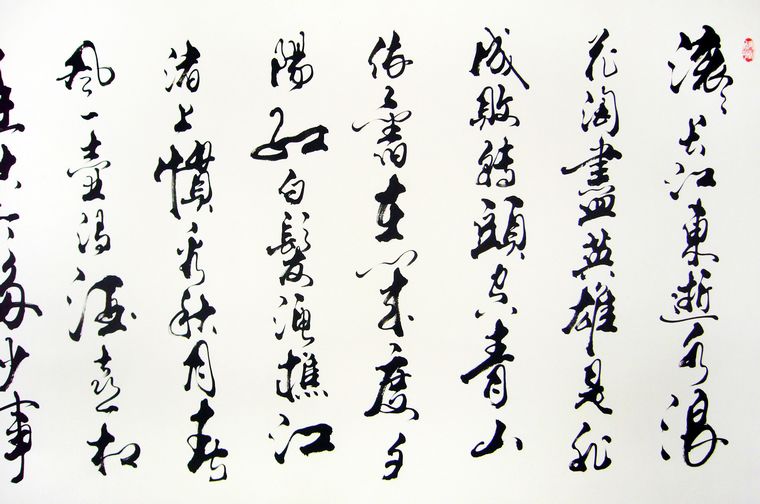 滚々长江東逝水浪
花淘盡英雄是非
成敗轉頭空青山
依舊在幾度夕
陽紅白髮漁樵江
渚上慣看秋月春
風一壺濁酒喜相
逢古今多少事